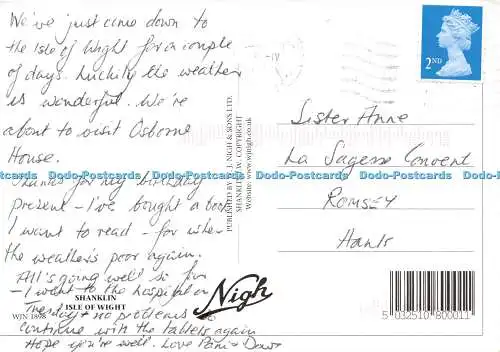 We've just come down to
the Isle of Wight for a couple
of days. Luckily the weather
is wonderful. We're
about to visit Osborne
House.
Thanks for my birthday
present - I've bought a book
I want to read - for when
the weather's poor again.
All's going well so far
- I went to the hospital on
Tuesday + no problems
continue with the tablets again
Hope you're well. Love + Dave
SHANKLIN
ISLE OF WIGHT
WJN 1898
Nigh
PUBLISHED BY W. J. NIGH & SONS LTD.
SHANKLIN, I.W. © COPYRIGHT
Website: www.wjnigh.co.uk
2ND
Sister Anne
La Sagesse Convent
ROMSEY
Hants
5 032510 800011
Dodo-Postcards Dodo-Postcards Dodo-Postcards Dodo-Postcards Dodo-Postcards